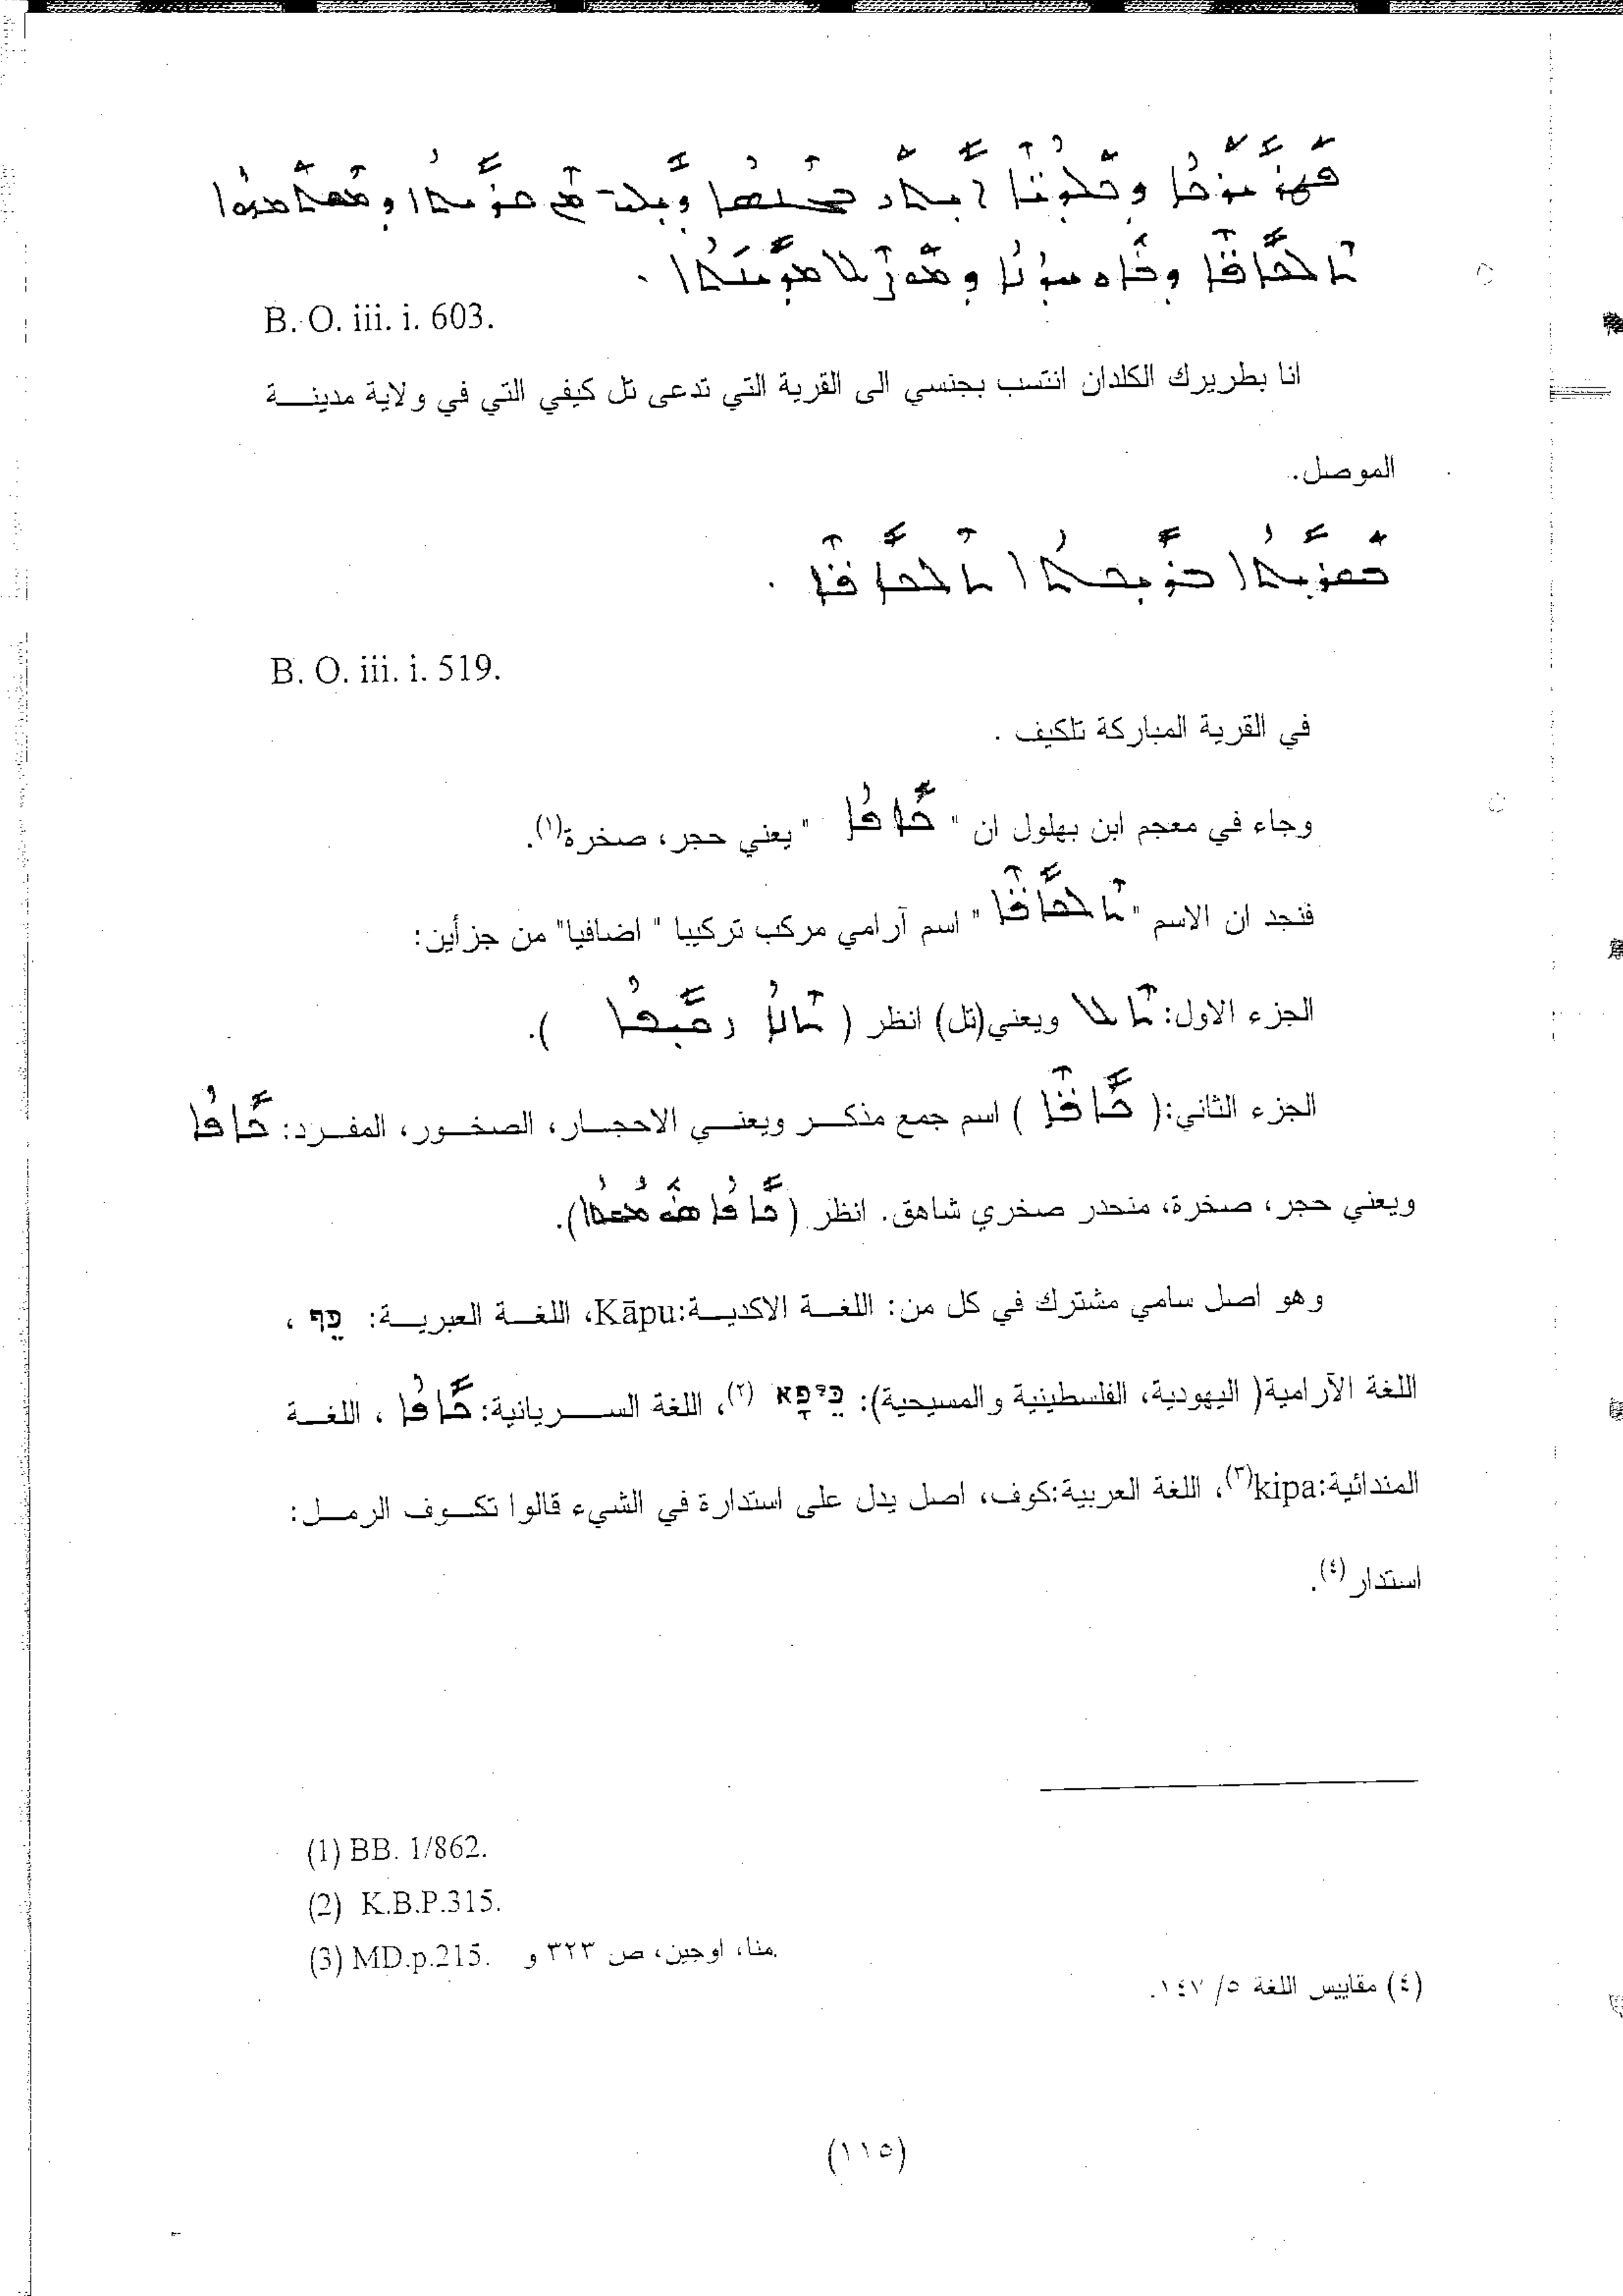 B. O. iii. i. 603.
انا بطريرك الكلدان انتسب بجنسي الى القرية التي تدعى تل كيفي التي في ولاية مدينة
الموصل.
B. O. iii. i. 519.
في القرية المباركة تلكيف .
وجاء في معجم ابن بهلول ان " ܟܐܦܐ " يعني حجر، صخرة(١).
فنجد ان الاسم " ܬܠܟܐܦܐ " اسم آرامي مركب تركيبا " اضافيا" من جزأين:
الجزء الاول: ويعني(تل) انظر ( ).
الجزء الثاني:( ܟܐܦܐ ) اسم جمع مذكر ويعني الاحجار، الصخور، المفرد: ܟܐܦܐ
ويعني حجر، صخرة، منحدر صخري شاهق. انظر ( ).
وهو اصل سامي مشترك في كل من: اللغة الاكدية:Kāpu، اللغة العبرية: כֵּף ،
اللغة الآرامية( اليهودية، الفلسطينية والمسيحية): כֵּיפָא (٢)، اللغة السريانية: ܟܐܦܐ ، اللغة
المندائية:kipa(٣)، اللغة العربية:كوف، اصل يدل على استدارة في الشيء قالوا تكوف الرمل:
استدار (٤).
(1) BB. 1/862.
(2) K.B.P.315.
(3) MD.p.215. منا، اوجين، ص ٣٢٣ و.
(٤) مقاييس اللغة ٥/ ١٤٧.
(١١٥)